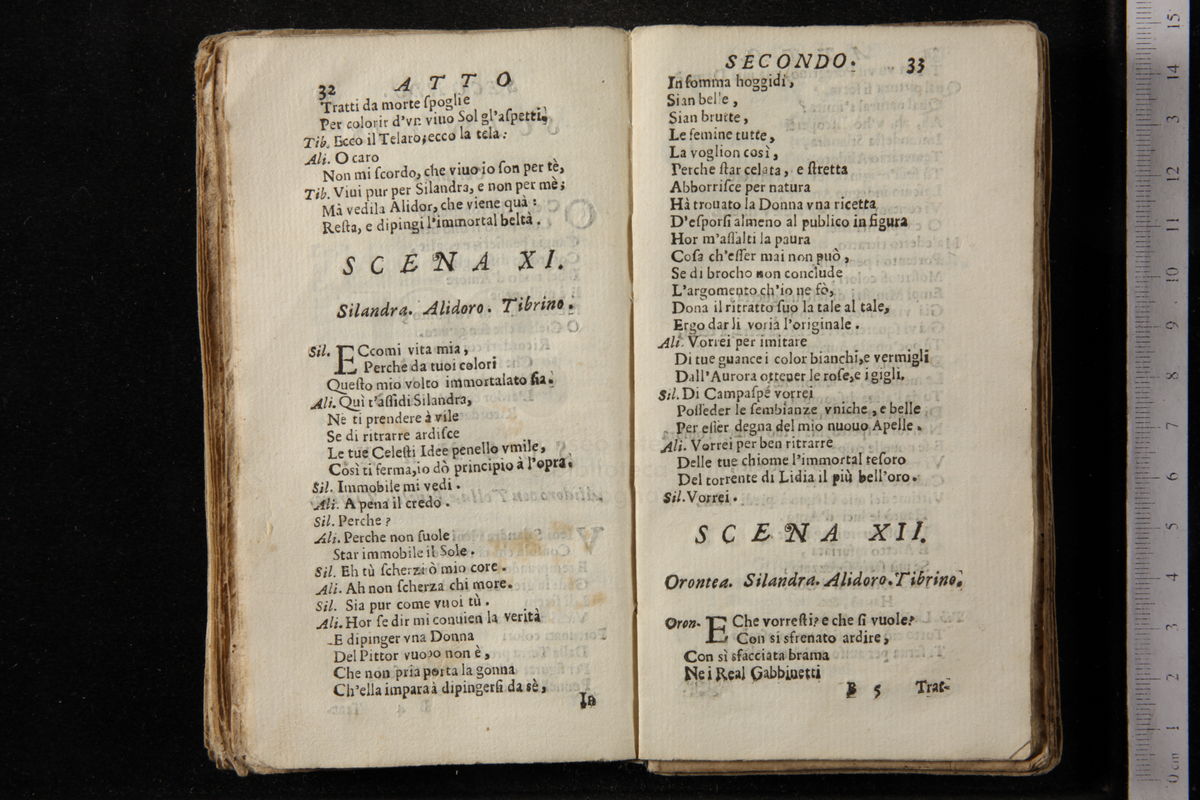 32 ATTO
Tratti da morte ſpoglie
Per colorir d'vn viuo Sol gl'aſpetti.
Tib. Ecco il Telaro, ecco la tela:
Ali. O caro
Non mi ſcordo, che viuo io ſon per tè,
Tib. Viui pur per Silandra, e non per mè;
Mà vedila Alidor, che viene quà:
Reſta, e dipingi l'immortal beltà.
SCENA XI.
Silandra. Alidoro. Tibrino.
Sil. ECcomi vita mia,
Perche da tuoi colori
Queſto mio volto immortalato ſia.
Ali. Quì t'aſſidi Silandra,
Nè ti prendere à vile
Se di ritrarre ardiſce
Le tue Celeſti Idee penello vmile,
Così ti ferma, io dò principio à l'opra.
Sil. Immobile mi vedi.
Ali. A pena il credo.
Sil. Perche?
Ali. Perche non ſuole
Star immobile il Sole.
Sil. Eh tù ſcherzi ò mio core.
Ali. Ah non ſcherza chi more.
Sil. Sia pur come vuoi tù.
Ali. Hor ſe dir mi conuien la verità
E dipinger vna Donna
Del Pittor vuopo non è,
Che non pria porta la gonna
Ch'ella impara à dipingerſi da sè,
In
SECONDO. 33
In ſomma hoggidì,
Sian belle,
Sian brutte,
Le femine tutte,
La voglion così,
Perche ſtar celata, e ſtretta
Abborriſce per natura
Hà trouato la Donna vna ricetta
D'eſporſi almeno al publico in figura
Hor m'aſſalti la paura
Coſa ch'eſſer mai non può,
Se di brocho non conclude
L'argomento ch'io ne fò,
Dona il ritratto ſuo la tale al tale,
Ergo dar li vorià l'originale.
Ali. Vorrei per imitare
Di tue guance i color bianchi, e vermigli
Dall'Aurora ottener le roſe, e i gigli.
Sil. Di Campaſpe vorrei
Poſſeder le ſembianze vniche, e belle
Per eſſer degna del mio nuouo Apelle.
Ali. Vorrei per ben ritrarre
Delle tue chiome l'immortal teſoro
Del torrente di Lidia il più bell'oro.
Sil. Vorrei.
SCENA XII.
Orontea. Silandra. Alidoro. Tibrino.
Oron. E Che vorreſti? e che ſi vuole?
Con si sfrenato ardire,
Con sì sfacciata brama
Ne i Real Gabbinetti
B 5 Trat-